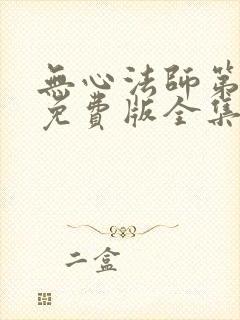 無心法師第
免費版全集
二盒